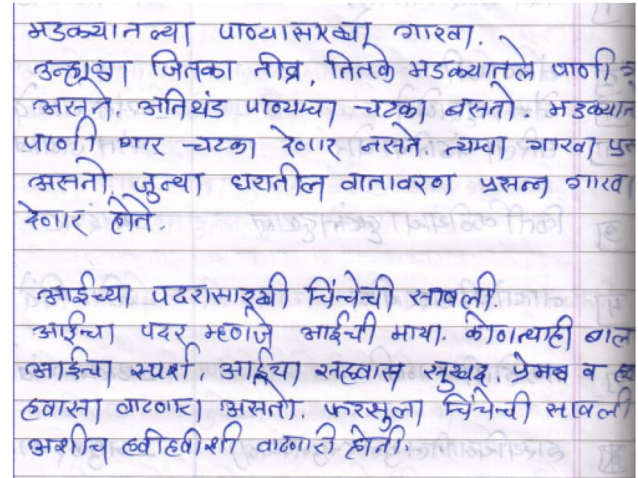 मडक्यातल्या पाण्यासारखा गारवा.
उन्हाळा जितका तीव्र, तितके मडक्यातले पाणी
असते. अतिथंड पाण्याचा चटका बसतो. मडक्यात
पाणी गार चटका देणार नसते. त्याचा गारवा
असतो. जुन्या घरातील वातावरण प्रसन्न गारवा
देणार होते.
आईच्या पदरासारखी चिंचेची सावली.
आईचा पदर म्हणजे आईची माया. कोणत्याही बाल
आईचा स्पर्श, आईचा सहवास सुखद, प्रेमळ व
हवासा वाटणारा असतो. फरसुला चिंचेची सावली
अशीच हवीहवीशी वाटणारी होती.